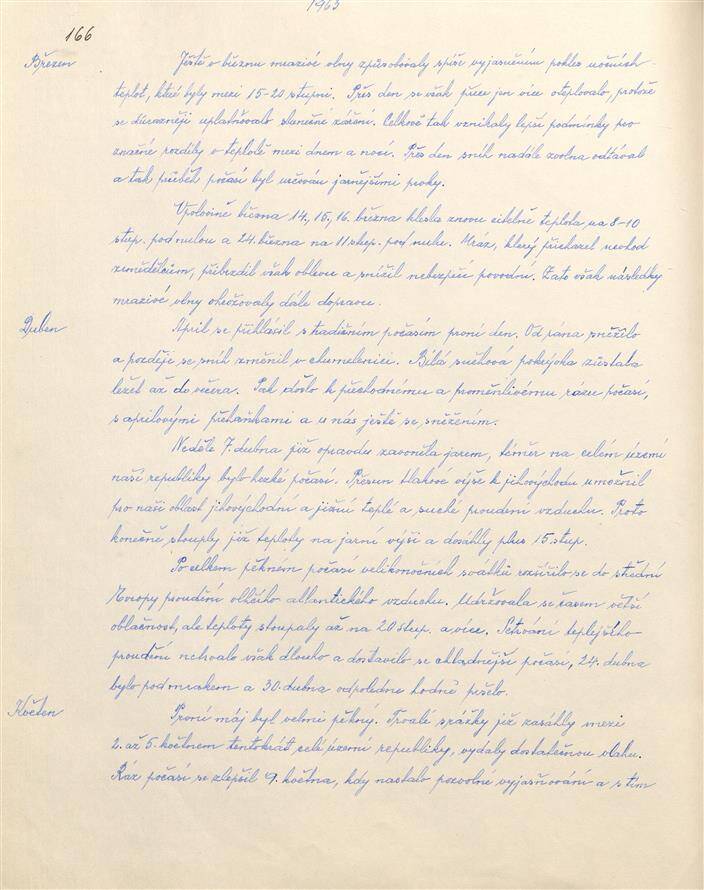 1963
166
Březen
Ještě v březnu mrazivé vlny způsobovaly spíše vyjasněním pokles nočních
teplot, které byly mezi 15-20 stupni. Přes den se však přece jen více oteplovalo, protože
se důrazněji uplatňovalo sluneční záření. Celkově tak vznikaly lepší podmínky pro
značné rozdíly v teplotě mezi dnem a nocí. Přes den sníh nadále zvolna odtával
a tak průběh počasí byl určován jarnějšími prvky.
Vpolovině března 14., 15., 16. března klesla znovu citelně teplota na 8-10
stup. pod nulou a 24. března na 11 stup. pod nulu. Mráz, který přicházel nevhod
zemědělcům, přibrzdil však oblevu a snížil nebezpečí povodní. Zato však následky
mrazivé vlny ohrožovaly dále dopravu.
Duben
April se přihlásil s tradičním počasím první den. Od rána sněžilo
a později se sníh změnil v chumelenici. Bílá sněhová pokrývka zůstala
ležet až do večera. Pak došlo k přechodnému a proměnlivému rázu počasí,
s aprílovými přeháňkami a u nás ještě se sněžením.
Neděle 7. dubna již opravdu zavoněla jarem, téměr na celém území
naší republiky bylo hezké počasí. Přesun tlakové výše k jihovýchodu umožnil
pro naši oblast jihovýchodní a jižní teplé a suché proudění vzduchu. Proto
konečně stouply již teploty na jarní výši a dosáhly plus 15 stup.
Po celkem pěkném počasí velikonočních svátků rozšířilo se do střední
Evropy proudění vlhčího atlantického vzduchu. Udržovala se časem větší
oblačnost, ale teploty stoupaly až na 20 stup. a více. Setrvání teplejšího
proudění netrvalo však dlouho a dostavilo se chladnější počasí, 24. dubna
bylo pod mrakem a 30. dubna odpoledne hodně pršelo.
Květen
První máj byl velmi pěkný. Trvalé srážky již zasáhly mezi
2. až 5. květnem tentokrát celé území republiky, vydaly dostatečnou vláhu.
Ráz počasí se zlepšil 9. května, kdy nastalo pozvolné vyjasňování a s tím